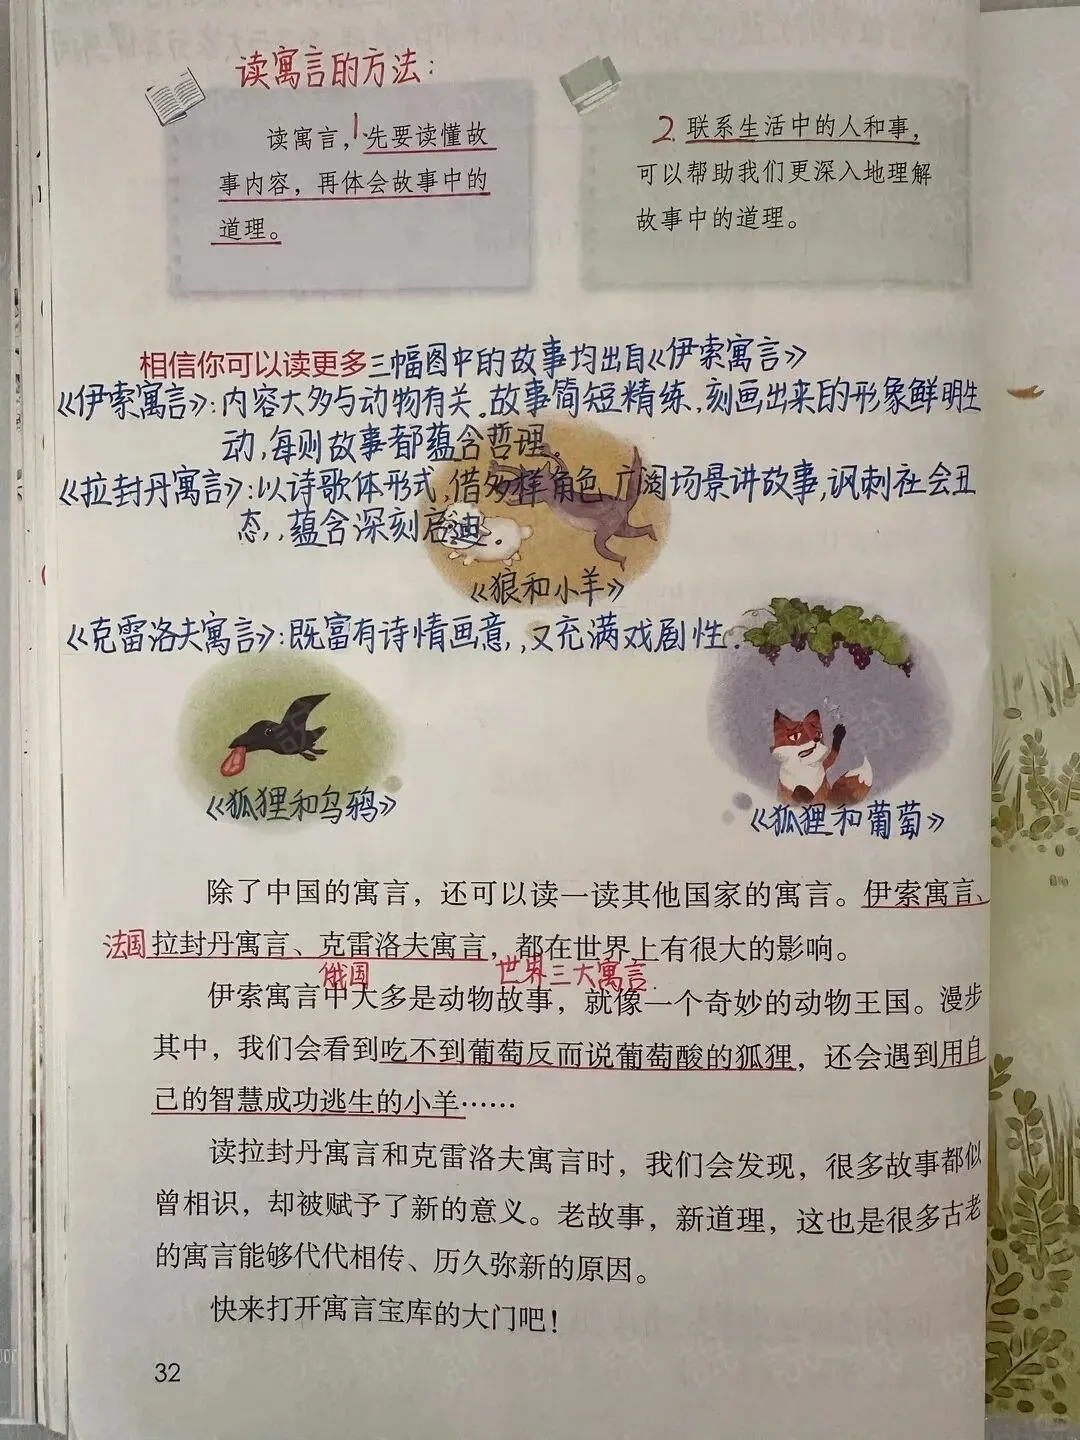 读寓言的方法：
读寓言，1.先要读懂故
事内容，再体会故事中的
道理。
2.联系生活中的人和事，
可以帮助我们更深入地理解
故事中的道理。
相信你可以读更多三幅图中的故事均出自《伊索寓言》
《伊索寓言》：内容大多与动物有关。故事简短精练，刻画出来的形象鲜明生
动，每则故事都蕴含哲理。
《拉封丹寓言》：以诗歌体形式，借多样角色，广阔场景讲故事，讽刺社会丑
态，，蕴含深刻启迪。
《狼和小羊》
《克雷洛夫寓言》：既富有诗情画意，，又充满戏剧性.
《狐狸和乌鸦》
《狐狸和葡萄》
除了中国的寓言，还可以读一读其他国家的寓言。伊索寓言、
法国拉封丹寓言、克雷洛夫寓言，都在世界上有很大的影响。
俄国 世界三大寓言.
伊索寓言中大多是动物故事，就像一个奇妙的动物王国。漫步
其中，我们会看到吃不到葡萄反而说葡萄酸的狐狸，还会遇到用自
己的智慧成功逃生的小羊……
读拉封丹寓言和克雷洛夫寓言时，我们会发现，很多故事都似
曾相识，却被赋予了新的意义。老故事，新道理，这也是很多古老
的寓言能够代代相传、历久弥新的原因。
快来打开寓言宝库的大门吧！
32